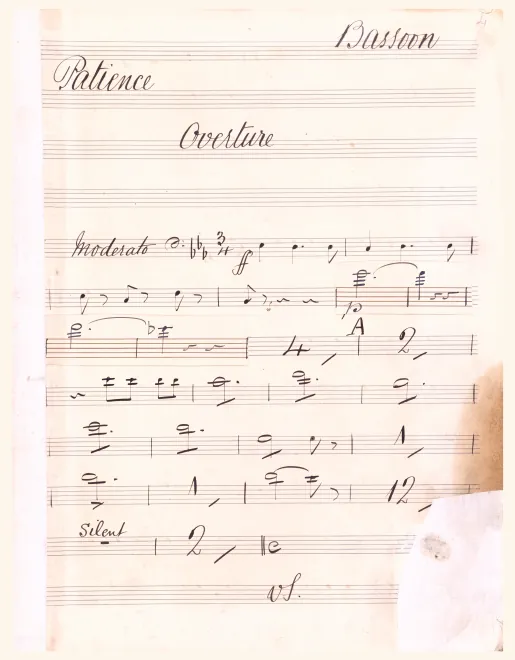 Bassoon
Patience
Overture
Moderato 3 4 ff
p
4 A 2
1
1 12
Silent
2 C
VS.